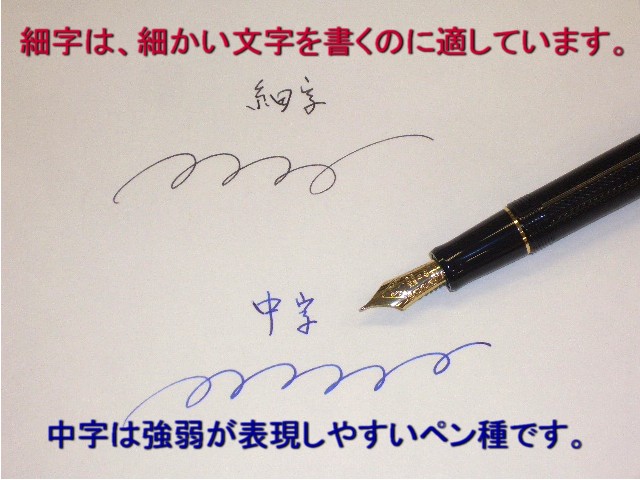 細字は、細かい文字を書くのに適しています。
細字
中字
中字は強弱が表現しやすいペン種です。